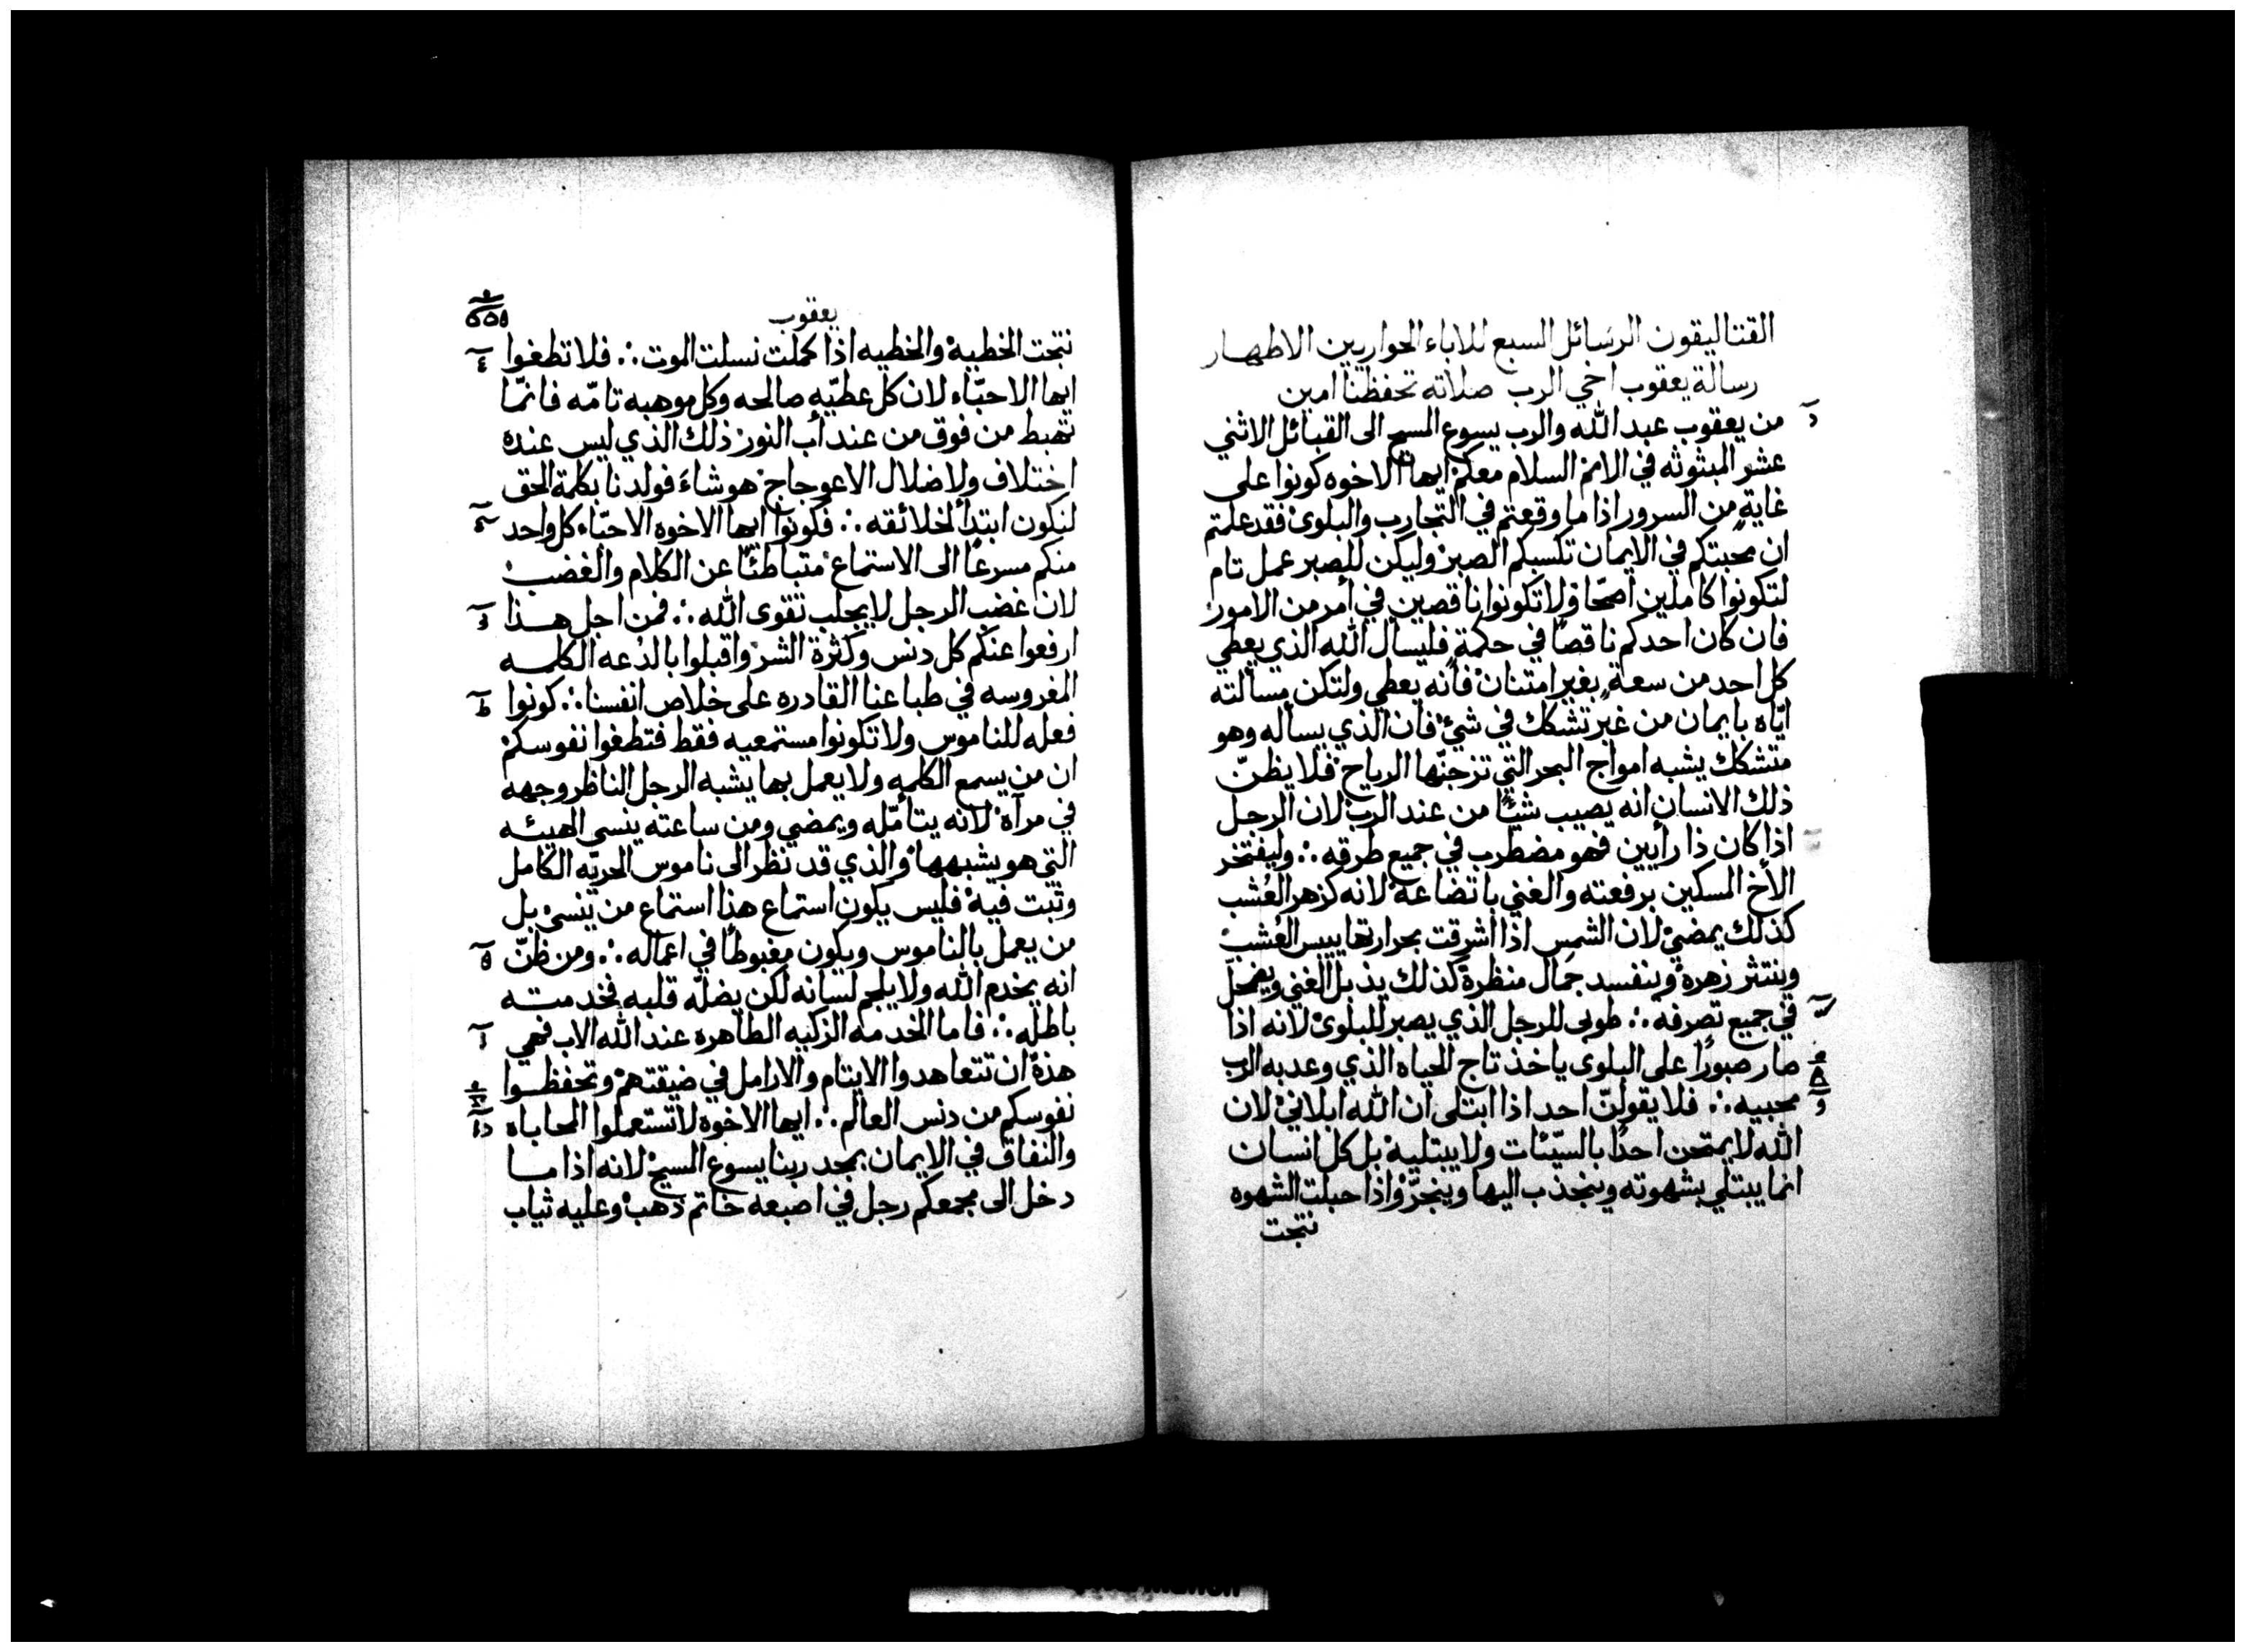 القتاليقون الرسائل السبع للاباء الحواريين الاطهار
رسالة يعقوب اخي الرب صلاته تحفظنا امين
من يعقوب عبد الله والرب يسوع المسيح الى القبائل الاثني
عشر المبثوثه في الامم السلام معكم ايها الاخوه كونوا على
غايةٍ من السرور اذا ما وقعتم في التجارب والبلوى فقد علمتم
ان محبتكم في الايمان تكسبكم الصبر وليكن للصبر عمل تام
لتكونوا كاملين اصحّا ولا تكونوا ناقصين في أمر من الامور
فان كان احدكم ناقصًا في حكمةٍ فليسال الله الذي يعطي
كل احد من سعةٍ بغير امتنان فانه يعطي ولتكن مسألته
ايّاه بايمان من غير تشكك في شيء فان الذي يساله وهو
متشكك يشبه امواج البحر التي تزجّها الرياح فلا يظنّ
ذلك الانسان انه يصيب شيًا من عند الرب لان الرجل
اذا كان ذا رايين فهو مضطرب في جميع طرقه ∴ وليفتخر
الاخ المسكين برفعته والغني باتضاعه لانه كزهر العُشب
كذلك يمضي لان الشمس اذا أشرقت بحرارتها ييبس العُشب
وينتثر زهره وينفسد جمال منظره كذلك يذبل الغني ويضمحل
في جميع تصرفه ∴ طوبى للرجل الذي يصبر للبلوى لانه اذا
صار صبورًا على البلوى ياخذ تاج الحياه الذي وعد به الرب
محبيه ∴ فلا يقولنّ احد اذا ابتلى ان الله ابلاني لان
الله لا يمتحن احدًا بالسيّئات ولا يبتليه بل كل انسان
انما يبتلي بشهوته وينجذب اليها وينجرّ واذا حبلت الشهوه
نتجت
يعقوب
نتجت الخطية والخطيه اذا كملت نسلت الموت ∴ فلا تطغوا
ايها الاحبّاء لان كل عطيّه صالحه وكل موهبه تامّه فانمّا
تهبط من فوق من عند أب النور ذلك الذي ليس عنده
اختلاف ولا ضلال الاعوجاج هو شاءَ فولدنا بكلمة الحق
لنكون ابتدأ لخلائقه ∴ فكونوا ايها الاخوه الاحبّاء كل واحد
منكم مسرعًا الى الاستماع متباطئًا عن الكلام والغضب
لان غضب الرجل لا يجلب تقوى الله ∴ فمن اجل هذا
ارفعوا عنكم كل دنس وكثرة الشر واقبلوا بالدعه الكلمه
المغروسه في طباعنا القادره على خلاص انفسنا ∴ كونوا
فعله للناموس ولا تكونوا مستمعيه فقط فتطغوا نفوسكم
ان من يسمع الكلمه ولا يعمل بها يشبه الرجل الناظر وجهه
في مرآه لانه يتأمّله ويمضي ومن ساعته ينسى الهيئه
التي هو يشبهها والذي قد نظر الى ناموس الحريّه الكامل
وثبت فيه فليس يكون استماع هذا استماع من ينسى بل
من يعمل بالناموس ويكون مغبوطًا في اعماله ∴ ومن ظنّ
انه يخدم الله ولا يلجم لسانه لكن يضلّه قلبه فخدمته
باطله ∴ فاما الخدمه الزكيه الطاهره عند الله الاب فهي
هذه ان تتعاهدوا الايتام والارامل في ضيقتهم وتحفظوا
نفوسكم من دنس العالم ∴ ايها الاخوه لا تستعملوا المحاباه
والنفاق في الايمان بمجد ربنا يسوع المسيح لانه اذا ما
دخل الى مجمعكم رجل في اصبعه خاتم ذهب وعليه ثياب